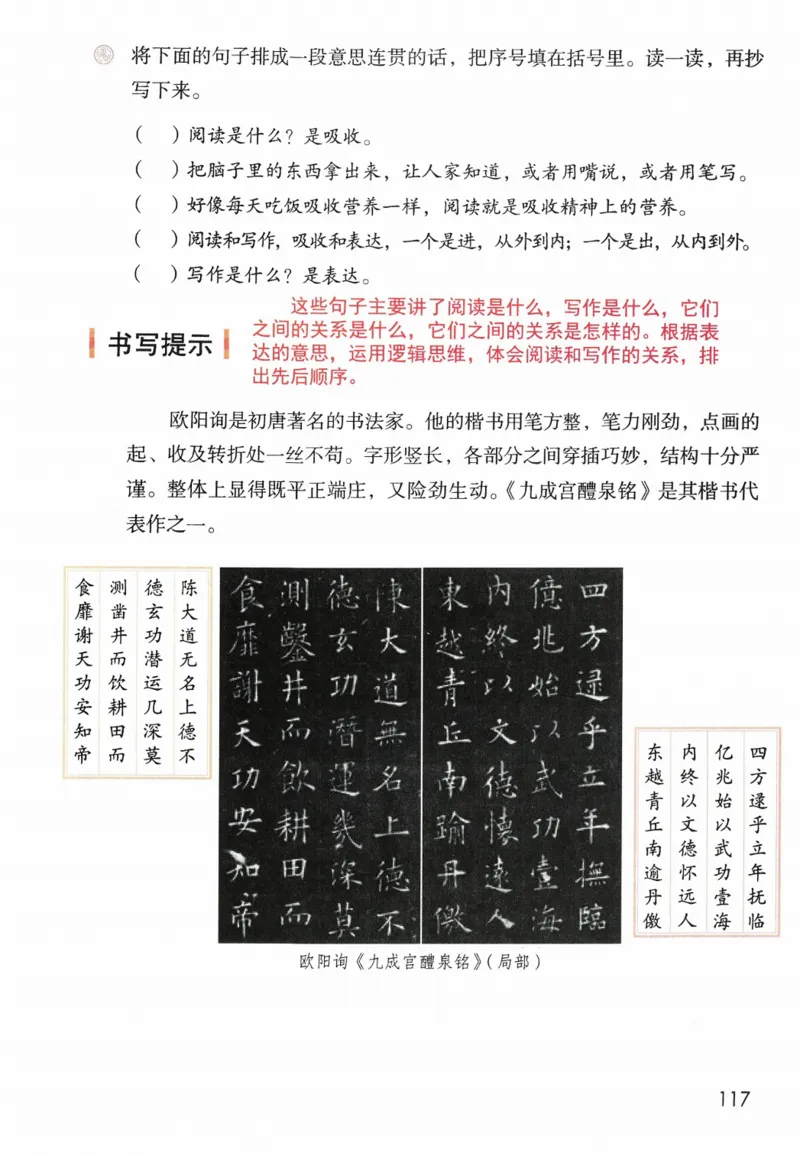 将下面的句子排成一段意思连贯的话，把序号填在括号里。读一读，再抄
写下来。
（　）阅读是什么？是吸收。
（　）把脑子里的东西拿出来，让人家知道，或者用嘴说，或者用笔写。
（　）好像每天吃饭吸收营养一样，阅读就是吸收精神上的营养。
（　）阅读和写作，吸收和表达，一个是进，从外到内；一个是出，从内到外。
（　）写作是什么？是表达。
这些句子主要讲了阅读是什么，写作是什么，它们
之间的关系是什么，它们之间的关系是怎样的。根据表
达的意思，运用逻辑思维，体会阅读和写作的关系，排
出先后顺序。
书写提示
欧阳询是初唐著名的书法家。他的楷书用笔方整，笔力刚劲，点画的
起、收及转折处一丝不苟。字形竖长，各部分之间穿插巧妙，结构十分严
谨。整体上显得既平正端庄，又险劲生动。《九成宫醴泉铭》是其楷书代
表作之一。
四方逯乎立年抚临
亿兆始以武功壹海
内终以文德怀远人
东越青丘南逾丹儌
陈大道无名上德不
德玄功潜运几深莫
测凿井而饮耕田而
食靡谢天功安知帝
四方逯乎立年撫臨
億兆始以武功壹海
内終以文德懷遠人
東越青丘南踰丹儌
陳大道無名上德不
德玄功潛運幾深莫
測鑿井而飲耕田而
食靡謝天功安知帝
欧阳询《九成宫醴泉铭》（局部）
117